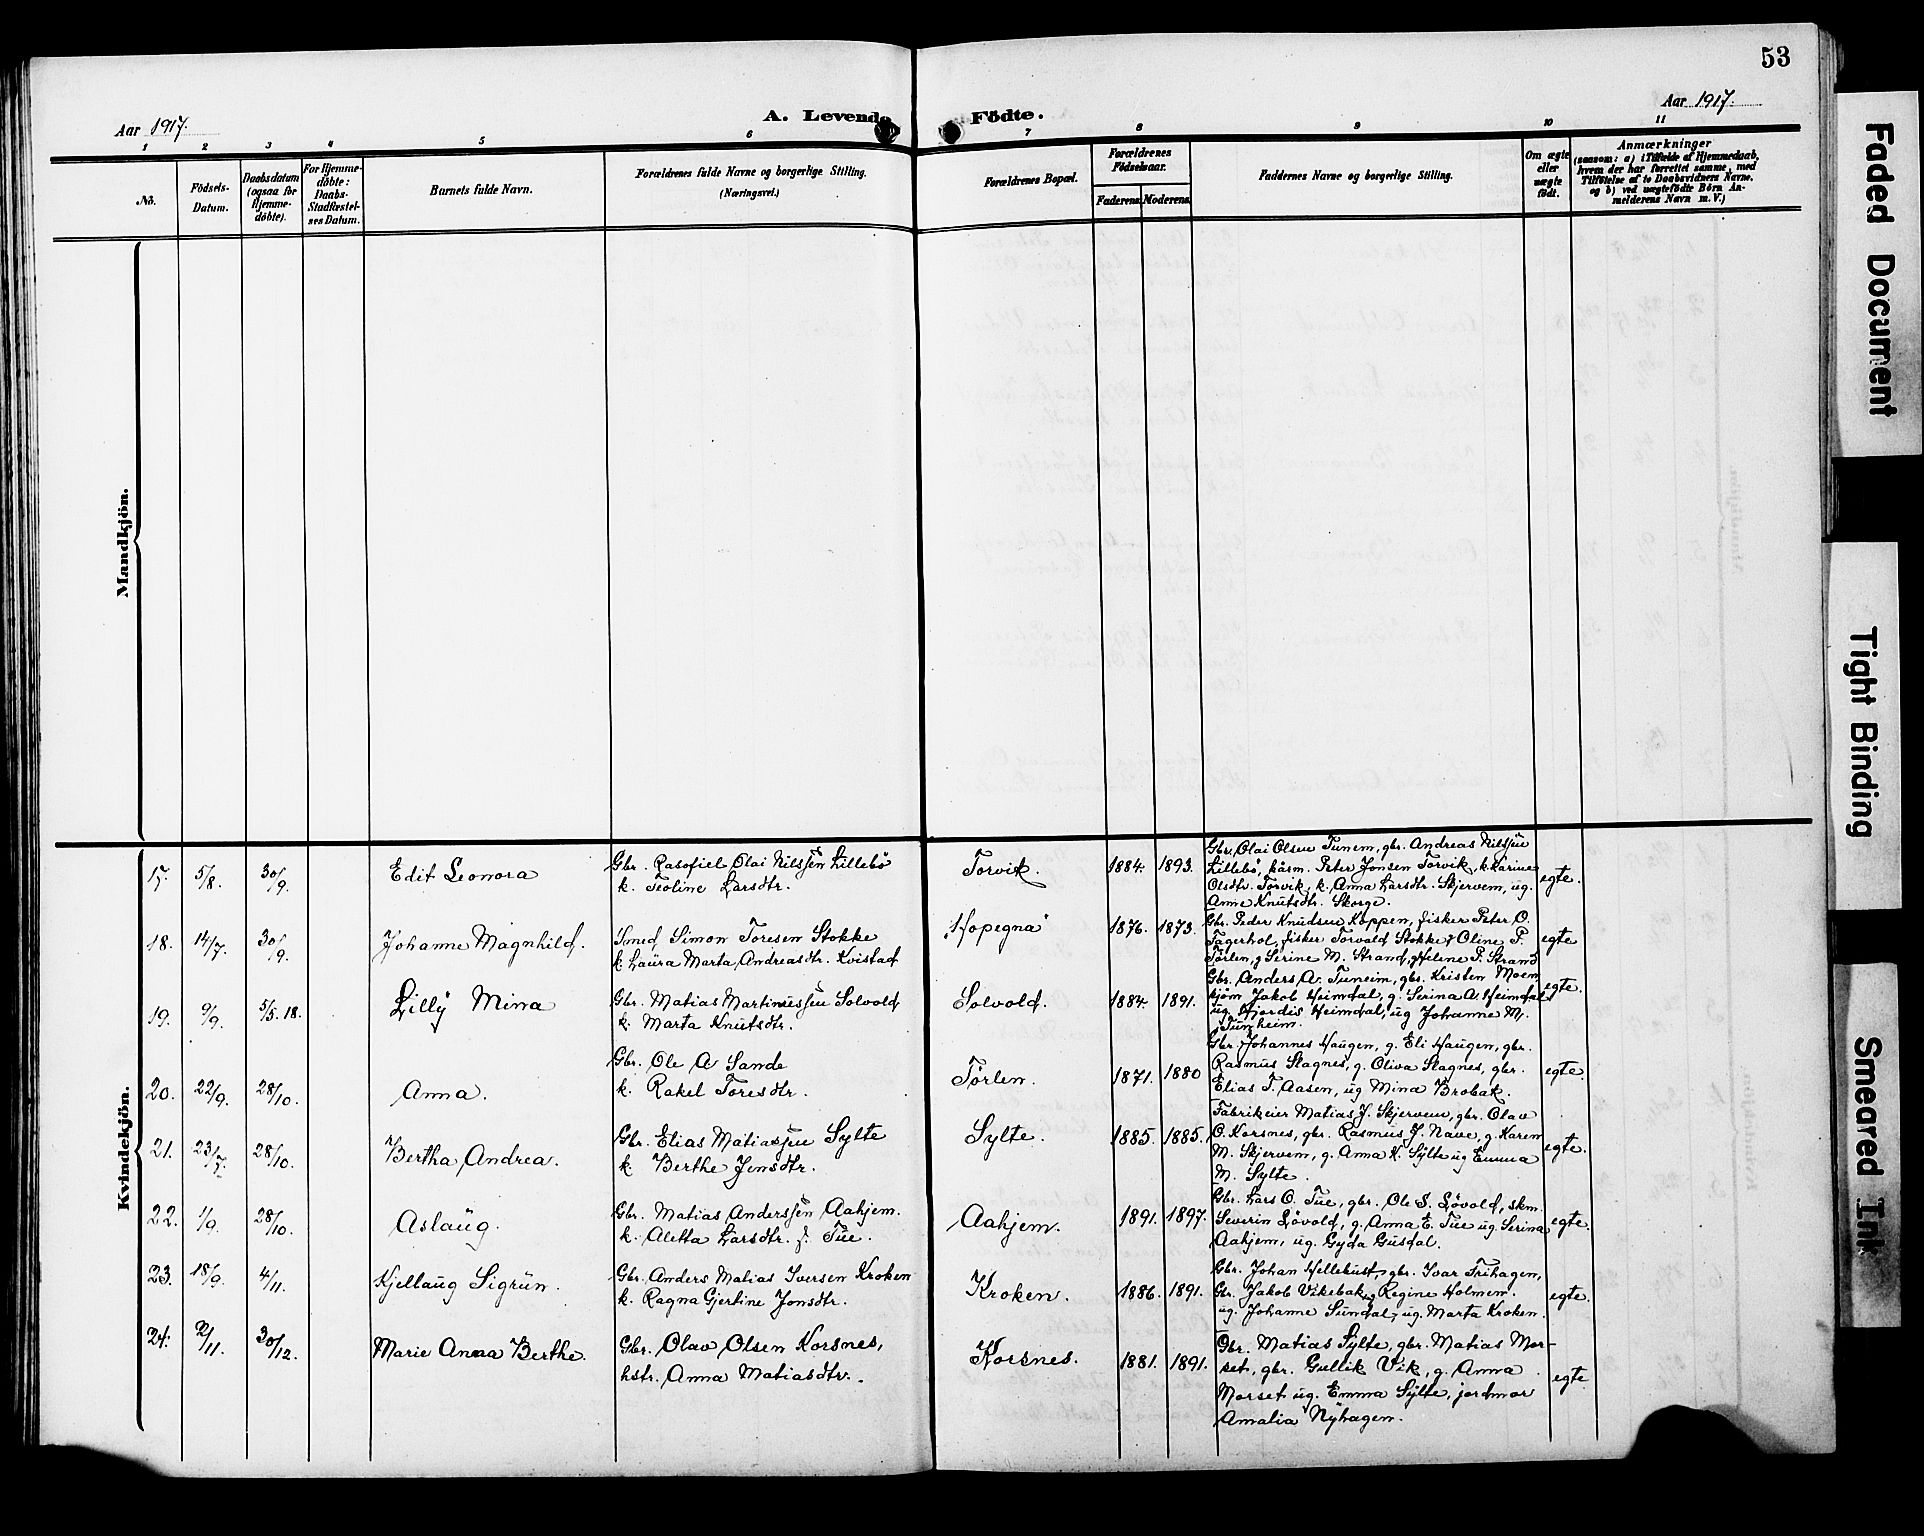 53
Aar 1917.
A. Levende Födte.
Aar 1917.
1 2 3 4 5 6 7 8 9 10 11
No.
Födsels-
Datum.
Daabsdatum
(ogsaa for
Hjemme-
döbte).
For Hjemme-
döbte:
Daabs-
Stadfæstel-
ses Datum.
Barnets fulde Navn.
Forældrenes fulde Navne og borgerlige Stilling.
(Næringsvei.)
Forældrenes Bopæl.
Forældrenes
Födselsaar.
Faderens. Moderens.
Faddernes Navne og borgerlige Stilling.
Om ægte
eller
uægte
födt.
Anmærkninger
(saasom: a) i Tilfælde af Hjemmedaab,
hvem der har forrettet samme, med
Tilföielse af to Daabsvidners Navne,
og b) ved uægtefödte Börn An-
melderens Navn m. V.)
Mandkjön.
Kvindekjön.
17. 5/8. 30/9. Edit Leonora
Gbr. Rasofiel Olai Nilssen Lillebö
k. Teoline Larsdtr.
Torvik. 1884. 1893.
Gbr. Olai Olsen Tunem, gbr. Andreas Nilssen
Lillebö, kåsm. Peter Jonsen Torvik, k. Karine
Olsdtr. Torvik, k. Anna Larsdtr. Skjervem, ug.
Anne Knutsdtr. Skorge.
egte.
18. 14/7. 30/9. Johanne Magnhild.
Smed Simon Toresen Stokke
k. Laura Marta Andreasdtr. Kvistad
"Hopegna" 1876. 1873.
Gbr. Peder Knudsen Koppen, fisker Peter O.
Fagerhol, fisker Torvald Stokke, g Oline P.
Torlen, g Serine M. Strand, g Helene P. Strand
egte
19. 9/9. 5/5. 18. Lilly Mina
Gbr. Matias Martinussen Solvold
k. Marta Knutsdtr.
Solvold. 1884. 1891.
Gbr. Anders A. Tuneim, gbr. Kristen Moen
kjøm Jakob Heimdal, g. Serina A. Heimdal
ug. Hjordis Heimdal, ug Johanne M.
Tunheim.
egte.
20. 22/9. 28/10. Anna.
Gbr. Ole A Sande
k. Rakel Toresdtr.
Tørlen. 1871. 1880
Gbr. Johannes Haugen, g. Eli Haugen, gbr.
Rasmus Slagnes, g. Oliva Slagnes, gbr.
Elias T. Aasen, ug Mina Brobak.
egte.
21. 23/7. 28/10. Bertha Andrea.
Gbr. Elias Matiassen Sylte
k. Berthe Jensdtr.
Sylte. 1885. 1885.
Fabrikeier Matias J. Skjervem, gbr. Olav
O. Korsnes, gbr. Rasmus J. Nave, g. Karen
M. Skjervem, g. Anna K. Sylte ug Emma
M. Sylte.
egte.
22. 1/9. 28/10. Aslaug.
Gbr. Matias Anderssen Aahjem.
k. Aletta Larsdtr. f. Tue.
Aahjem. 1891. 1897.
Gbr. Lars O. Tue, gbr. Ole S. Lövold, skm.
Severin Lövold, g. Anna E. Tue ug. Serina
Aahjem, ug. Gyda Gusdal.
egte.
23. 18/9. 4/11. Kjellaug Sigrun.
Gbr. Anders Matias Iversen Kroken
k. Ragna Gjertine Jonsdtr.
Kroken. 1886. 1891.
Gbr. Johan Hellehust, gbr. Ivar Trihagen,
Gbr. Jakob Vikebak, g Regine Holmem.
ug. Johanne Sundal, ug. Marta Kroken.
egte.
24. 2/11. 30/12. Marie Anna Berthe.
Gbr. Olav Olsen Korsnes,
hstr. Anna Matiasdtr.
Korsnes. 1881. 1891.
Gbr. Matias Sylte, gbr. Matias Mor-
set, gbr. Gullik Vik, g. Anna
Morset ug. Emma Sylte, jordmor
Amalia Nyhagen.
egte
Faded Document
Tight Binding
Smeared Ink